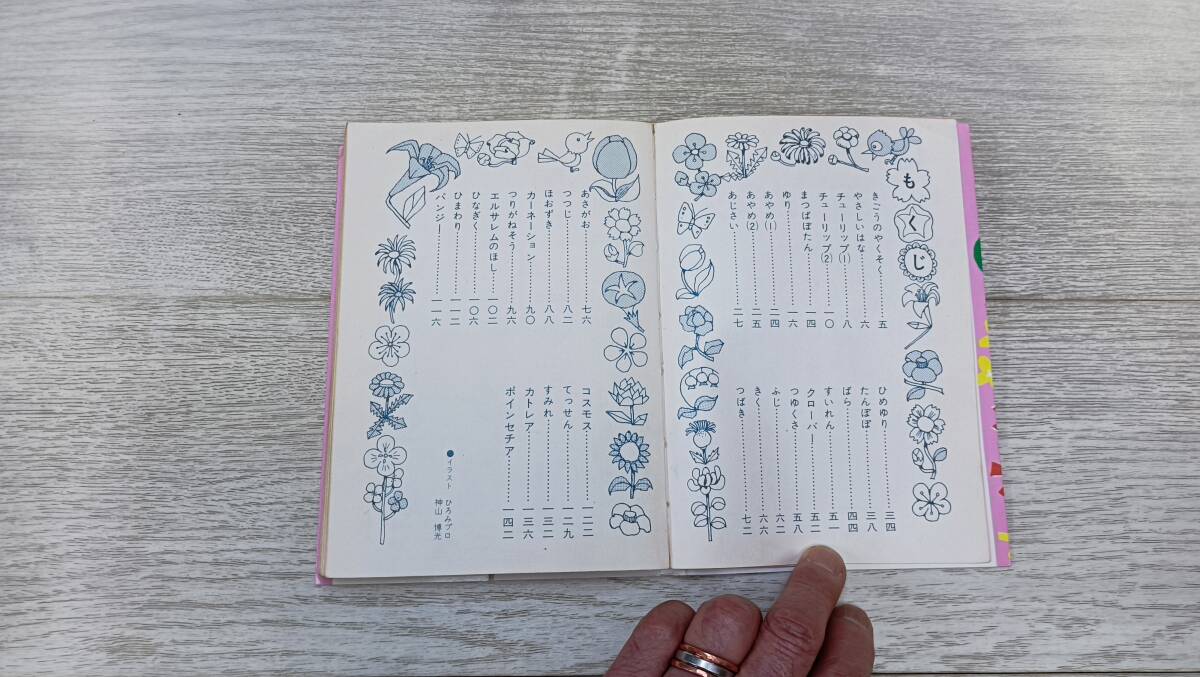 もくじ
きごうのやくそく……………五
やさしいはな……………六
チューリップ(1)……………八
チューリップ(2)……………一〇
まつばぼたん……………一四
ゆり……………一六
あやめ(1)……………二四
あやめ(2)……………二五
あじさい……………二七
ひめゆり……………三四
たんぽぽ……………三八
ばら……………四四
すいれん……………五一
クローバー……………五二
つゆくさ……………五八
ふじ……………六二
きく……………六六
つばき……………七二
あさがお……………七六
つつじ……………八二
ほおずき……………八八
カーネーション……………九〇
つりがねそう……………九六
エルサレムのほし……………一〇二
ひなぎく……………一〇六
ひまわり……………一一二
パンジー……………一一六
コスモス……………一二二
てっせん……………一二九
すみれ……………一三二
カトレア……………一三六
ポインセチア……………一四二
●イラスト ひろみプロ
神山 博光